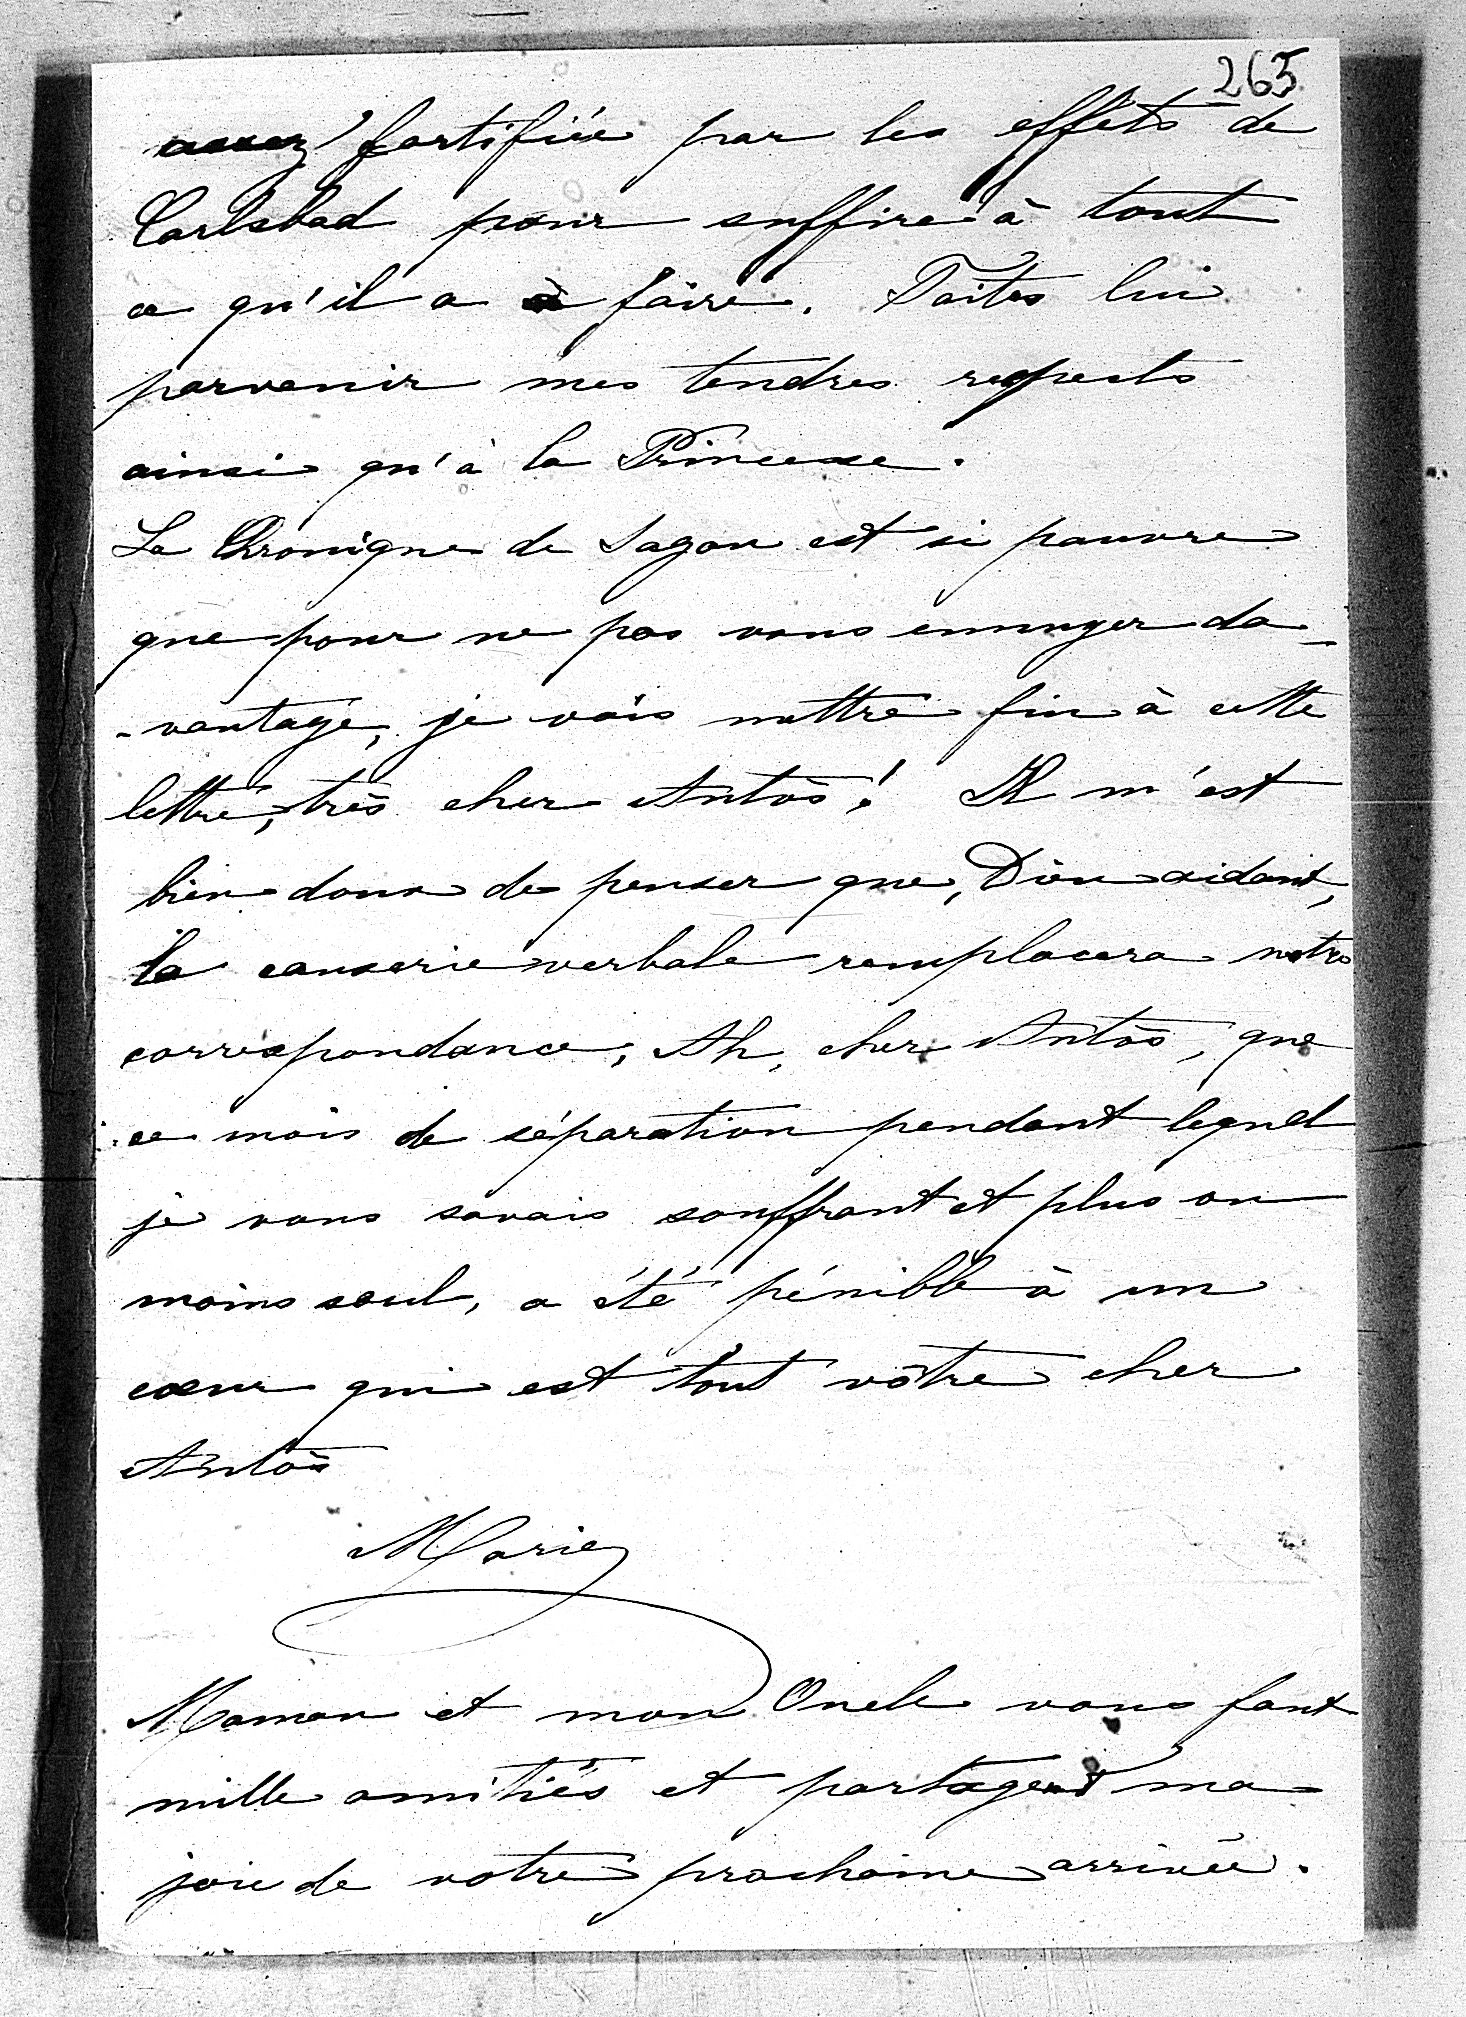 265
assez fortifiée par les effets de
Carlsbad pour suffire à tout
ce qu'il a à faire. Faites lui
parvenir mes tendres respects
ainsi qu'à la Princesse.
La Chronique de Sagan est si pauvre
que pour ne pas vous ennuyer da-
-vantage, je vais mettre fin à cette
lettre, très cher Antoś! Il m'est
bien doux de penser que, Dieu aidant,
la causerie verbale remplacera notre
correspondance. Ah, cher Antoś, que
ce mois de séparation pendant lequel
je vous savais souffrant et plus ou
moins seul, a été pénible à un
cœur qui est tout vôtre cher
Antoś
Marie
Maman et mon Oncle vous font
mille amitiés et partagent ma
joie de votre prochaine arrivée.